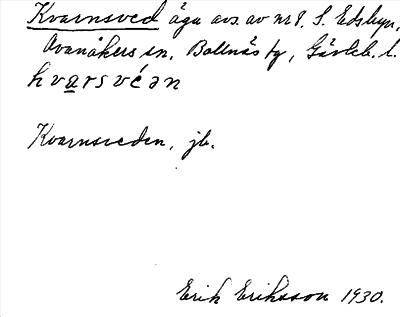 Kvarnsved ägu avs. av nr 8. S. Edsbyn,
Ovanåkers sn, Bollnäs tg, Gävleb. l.
hvarsvéən
Kvarnsveden, jb.
Erik Eriksson 1930.